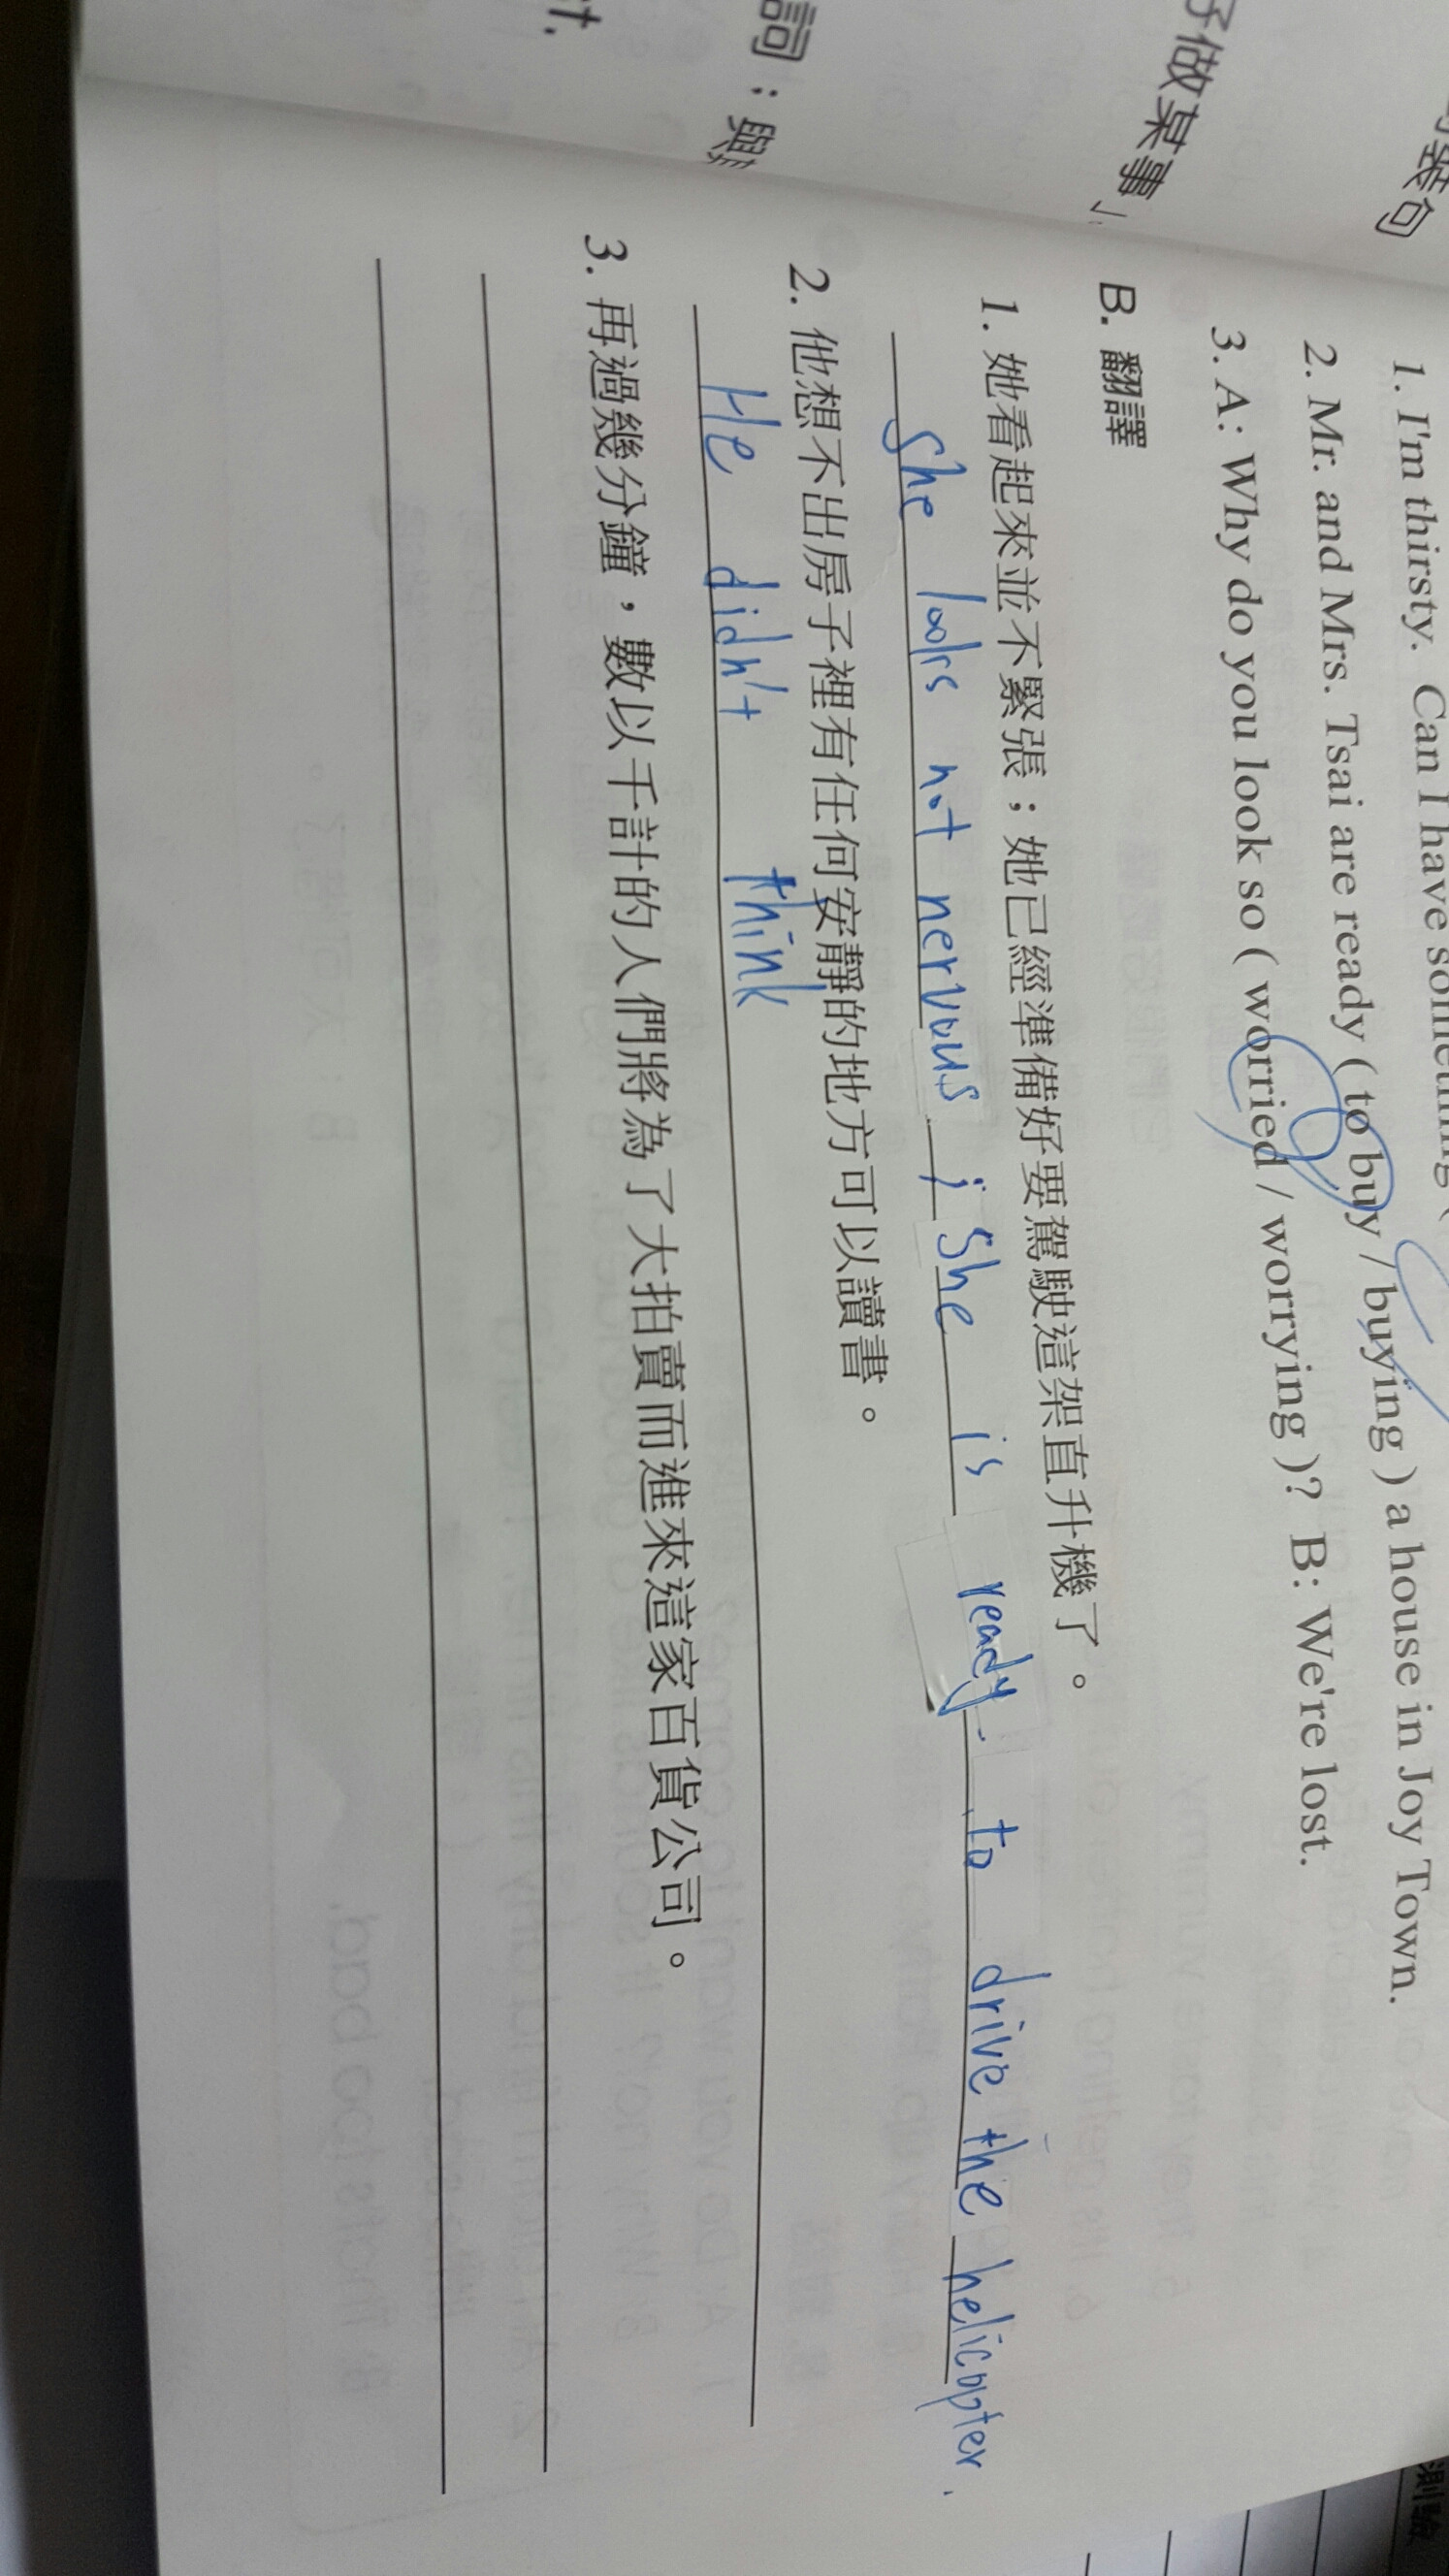 好做某事」
詞：與
t.
1. I'm thirsty. Can I have
2. Mr. and Mrs. Tsai are ready ( to buy / buying ) a house in Joy Town.
3. A: Why do you look so ( worried / worrying )? B: We're lost.
B. 翻譯
1. 她看起來並不緊張；她已經準備好要駕駛這架直升機了。
She looks not nervous ; She is ready to drive the helicopter.
2. 他想不出房子裡有任何安靜的地方可以讀書。
He didn't think
3. 再過幾分鐘，數以千計的人們將為了大拍賣而進來這家百貨公司。
測驗